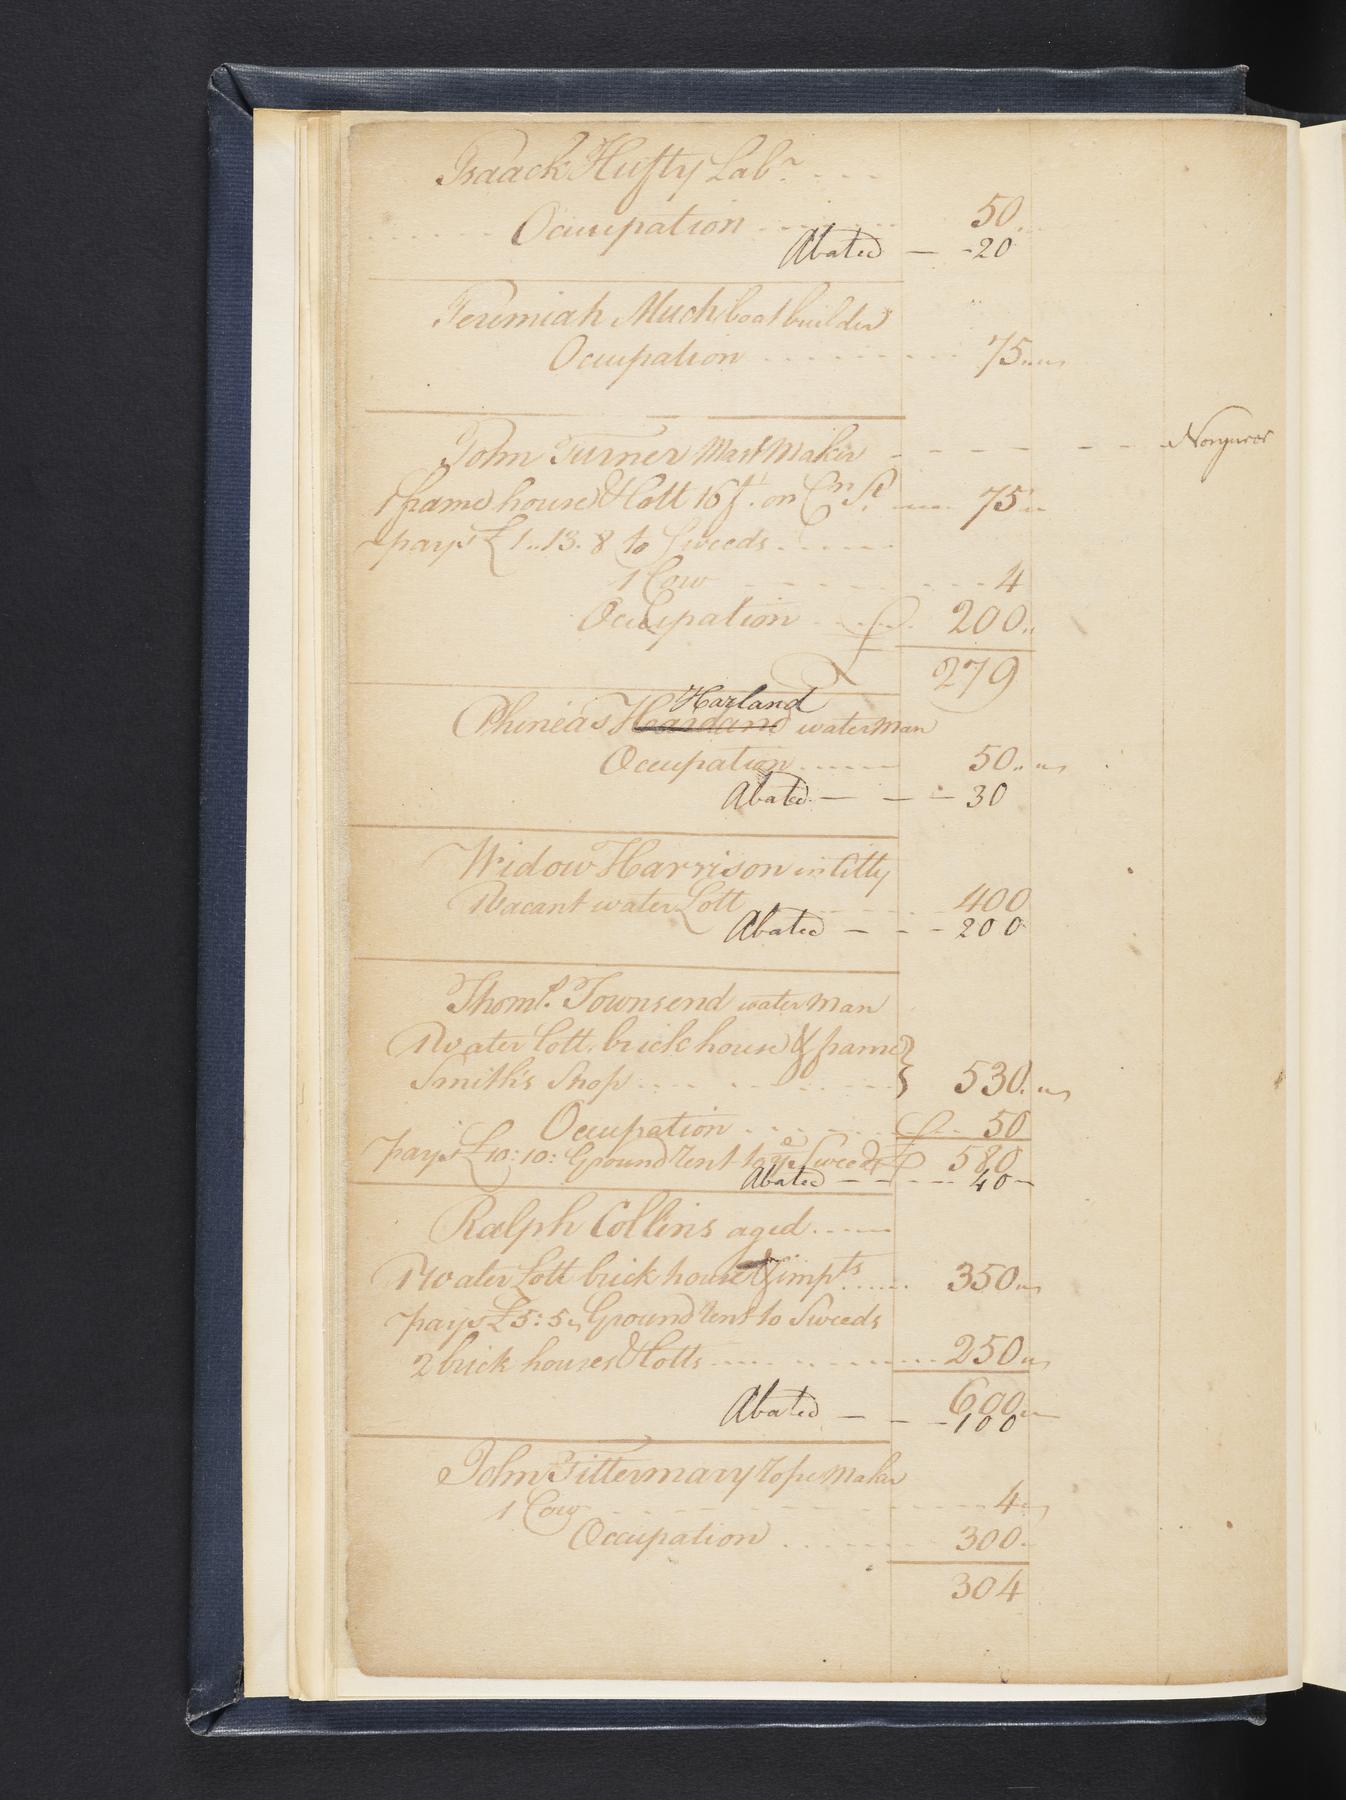 Isaack Hufty Labr
Occupation 50
Abated 20
Jeremiah Much boatbuilder
Occupation 75
John Turner Mast Maker
1 frame house & Lott 16 ft. on St 75
pays £1..13.8 to Sweeds
1 Cow 4
Occupation 200
279
Harland
Phineas waterman
Occupation 50
Abated 30
Widow Harrison in Citty
1 Vacant water Lott 400
Abated 200
Thoms. Townsend waterman
1 Water Lott, brick house & frame
Smith's Shop 530
Occupation 50
pays £10:10: Ground rent to ye Sweeds £ 580
Abated 40
Ralph Collins aged
1 Water Lott brick house & impts 350
pays £5:5 Ground rent to Sweeds
2 brick houses & Lotts 250
600
Abated 100
John Tittermary rope Maker
1 Cow 4
Occupation 300
304